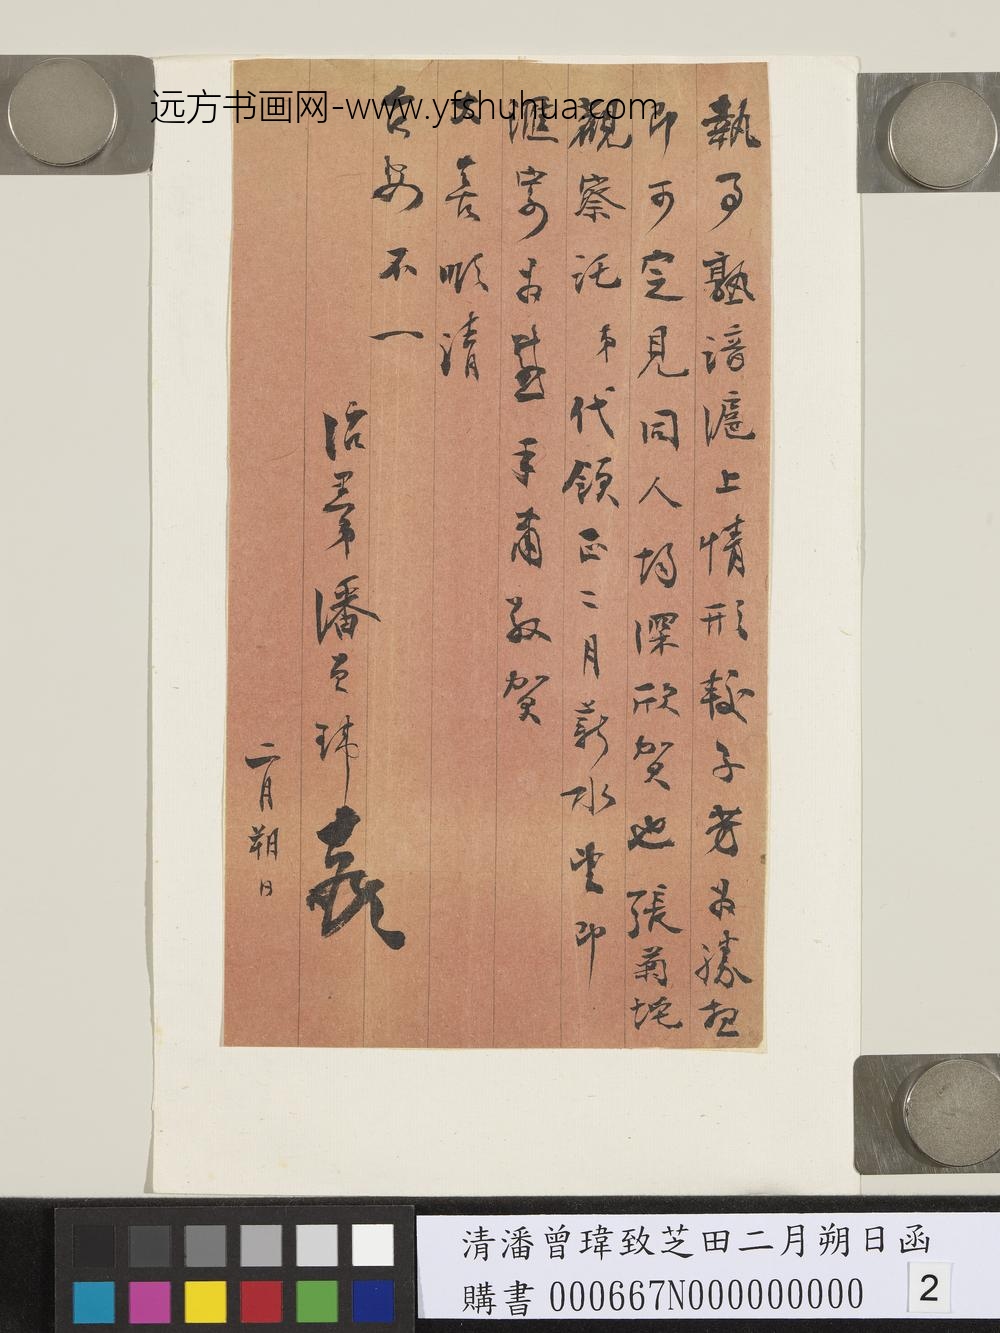 執事熟諳滬上情形較子芳為勝想
即可定見同人均深欣賀也張菊垞
觀察託弟代領正二月薪水望即
匯寄為盼手肅敬賀
大喜順請
台安不一
治單弟潘曾瑋
二月朔日
远方书画网-www.yfshuhua.com
清潘曾瑋致芝田二月朔日函
購書000667N000000000
2